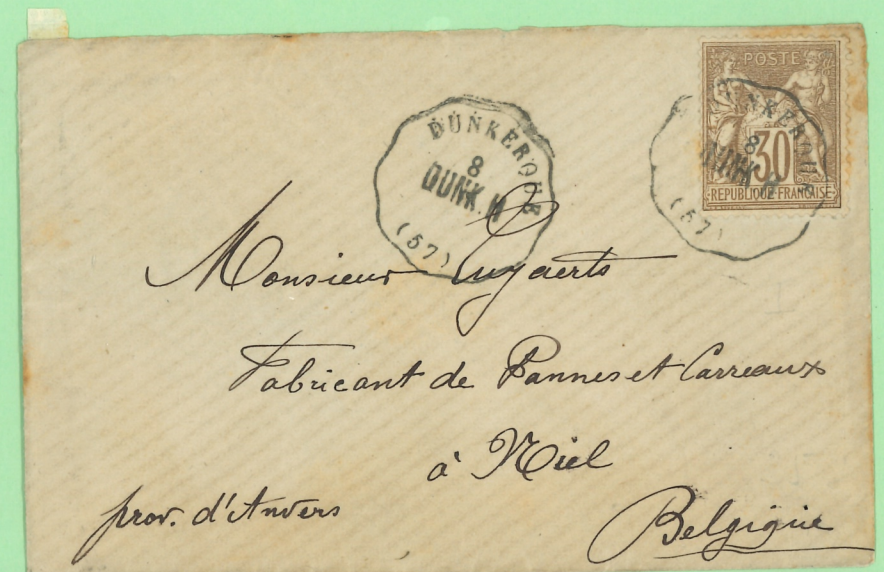 DUNKERQUE
8
DUNK. H
(57)
POSTE
30
REPUBLIQUE FRANÇAISE
NKERQUE
8
DUNK
(57)
Monsieur Luyaerts
Fabricant de Pannes et Carreaux
à Niel
prov. d'Anvers
Belgique